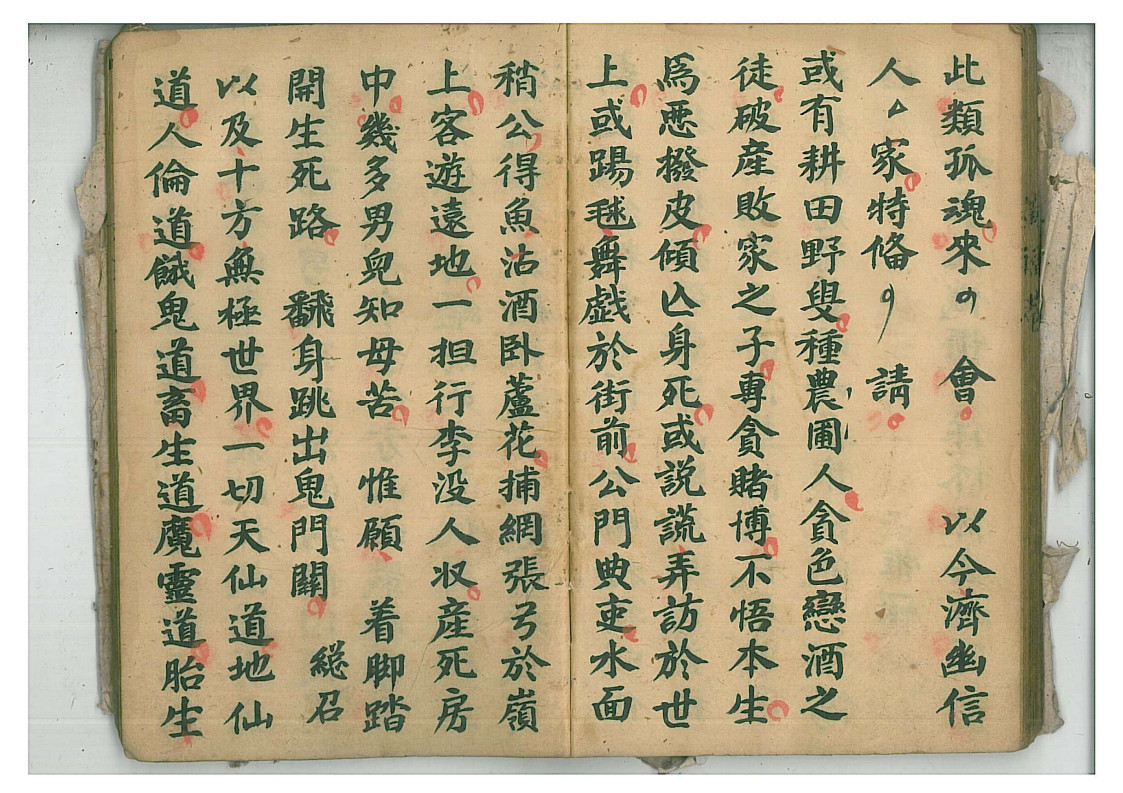 此類孤魂來々 會 以今濟幽信
人々家特俻 請
或有耕田野叟種農圃人貪色戀酒之
徒破産敗家之子專貪賭博不悟本生
爲悪撥皮傾亾身死或説謊弄訪於世
上或踢毬舞戯於街前公門典吏水面
稍公得魚沽酒卧蘆花捕網張弓於嶺
上客遊遠地一担行李没人収産死房
中幾多男兒知母苦 惟願 着脚踏
開生死路 飜身跳出鬼門關 総召
以及十方無極世界一切天仙道地仙
道人倫道餓鬼道畜生道魔靈道胎生